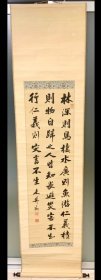 林深則鳥棲水廣則魚游仁義積
則物自歸之人皆知畏避災害不生
行仁義則災害不生